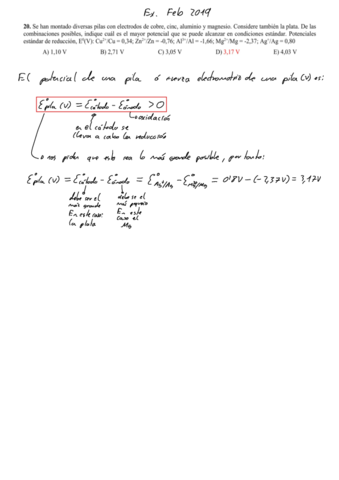 Ex. Feb 2019
20. Se han montado diversas pilas con electrodos de cobre, cinc, aluminio y magnesio. Considere también la plata. De las
combinaciones posibles, indique cuál es el mayor potencial que se puede alcanzar en condiciones estándar. Potenciales
estándar de reducción, E⁰(V): Cu²⁺/Cu = 0,34; Zn²⁺/Zn = -0,76; Al³⁺/Al = -1,66; Mg²⁺/Mg = -2,37; Ag⁺/Ag = 0,80
A) 1,10 V B) 2,71 V C) 3,05 V D) 3,17 V E) 4,03 V
El potencial de una pila ó fuerza electromotriz de una pila (V) es:
E°pila (V) = E°cátodo - E°ánodo > 0
oxidación
en el cátodo se
lleva a cabo la reducción
nos piden que esto sea lo más grande posible, por tanto:
E°pila (V) = E°cátodo - E°ánodo = E°Ag⁺/Ag - E°Mg²⁺/Mg = 0'8V - (-2,37V) = 3,17V
debe ser el debe ser el
más grande más pequeño
En este caso: En este
la plata caso el
Mg